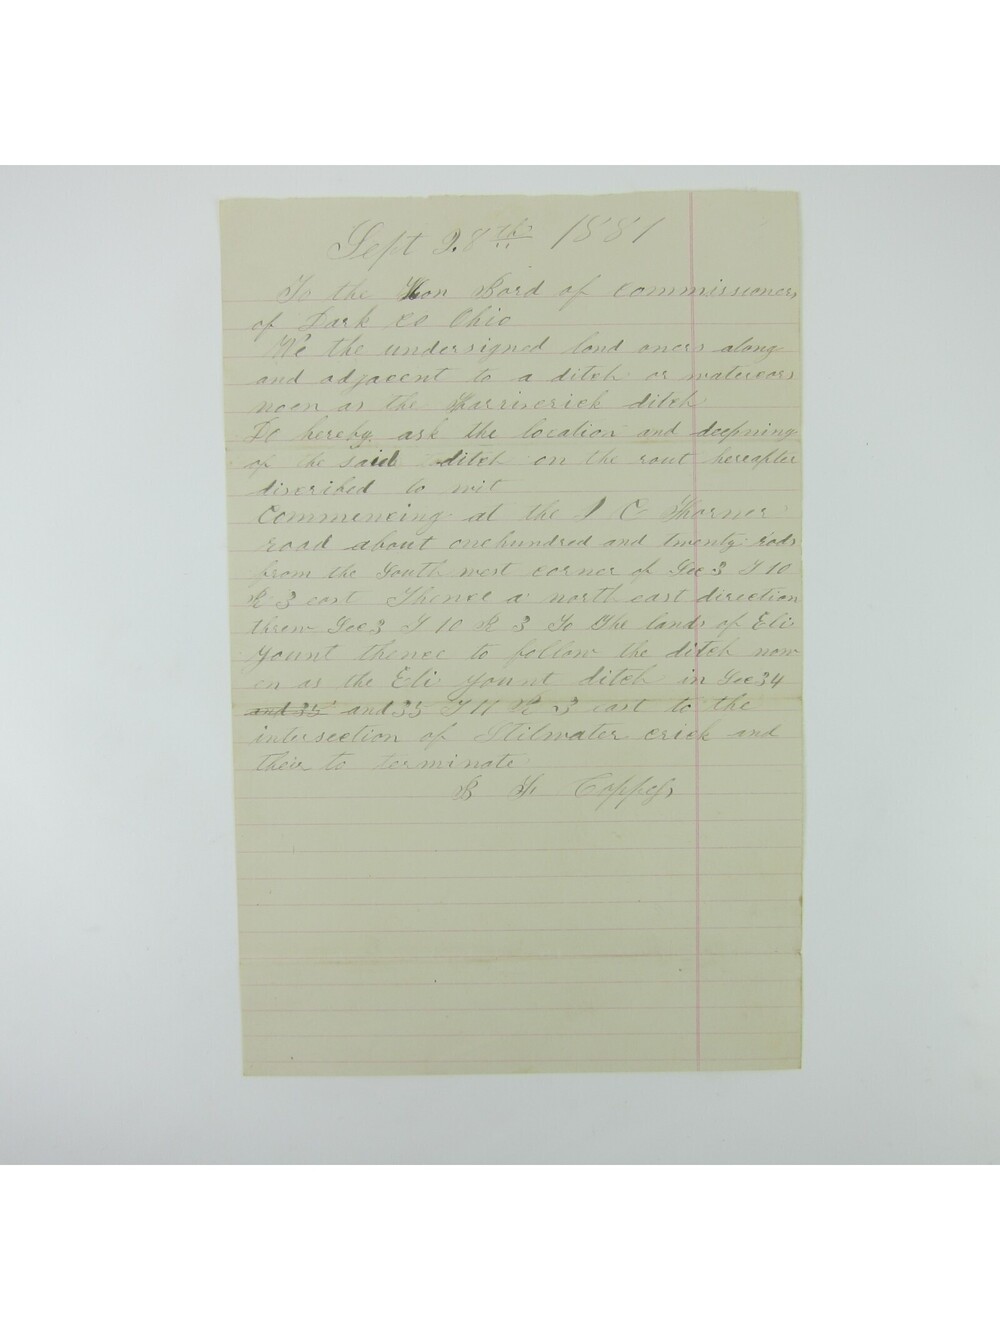 Sept 28th 1881
To the Hon Bord of commissioners
of Dark co Ohio
We the undersigned land oners along
and adjacent to a ditch or watercors
noen as the ditch
Do hereby ask the location and deepning
of the said ditch on the rout hereafter
discribed to wit
Commencing at the
road about onehundred and twenty rods
from the South west corner of Sec 3 T 10
R 3 east Thence a north east direction
threw Sec 3 T 10 R 3 To The lands of Eli
Yount thence to follow the ditch now
on as the Eli Yount ditch in Sec 34
and 35 and 35 T 11 R 3 east to the
intersection of Stilwater crick and
their to terminate